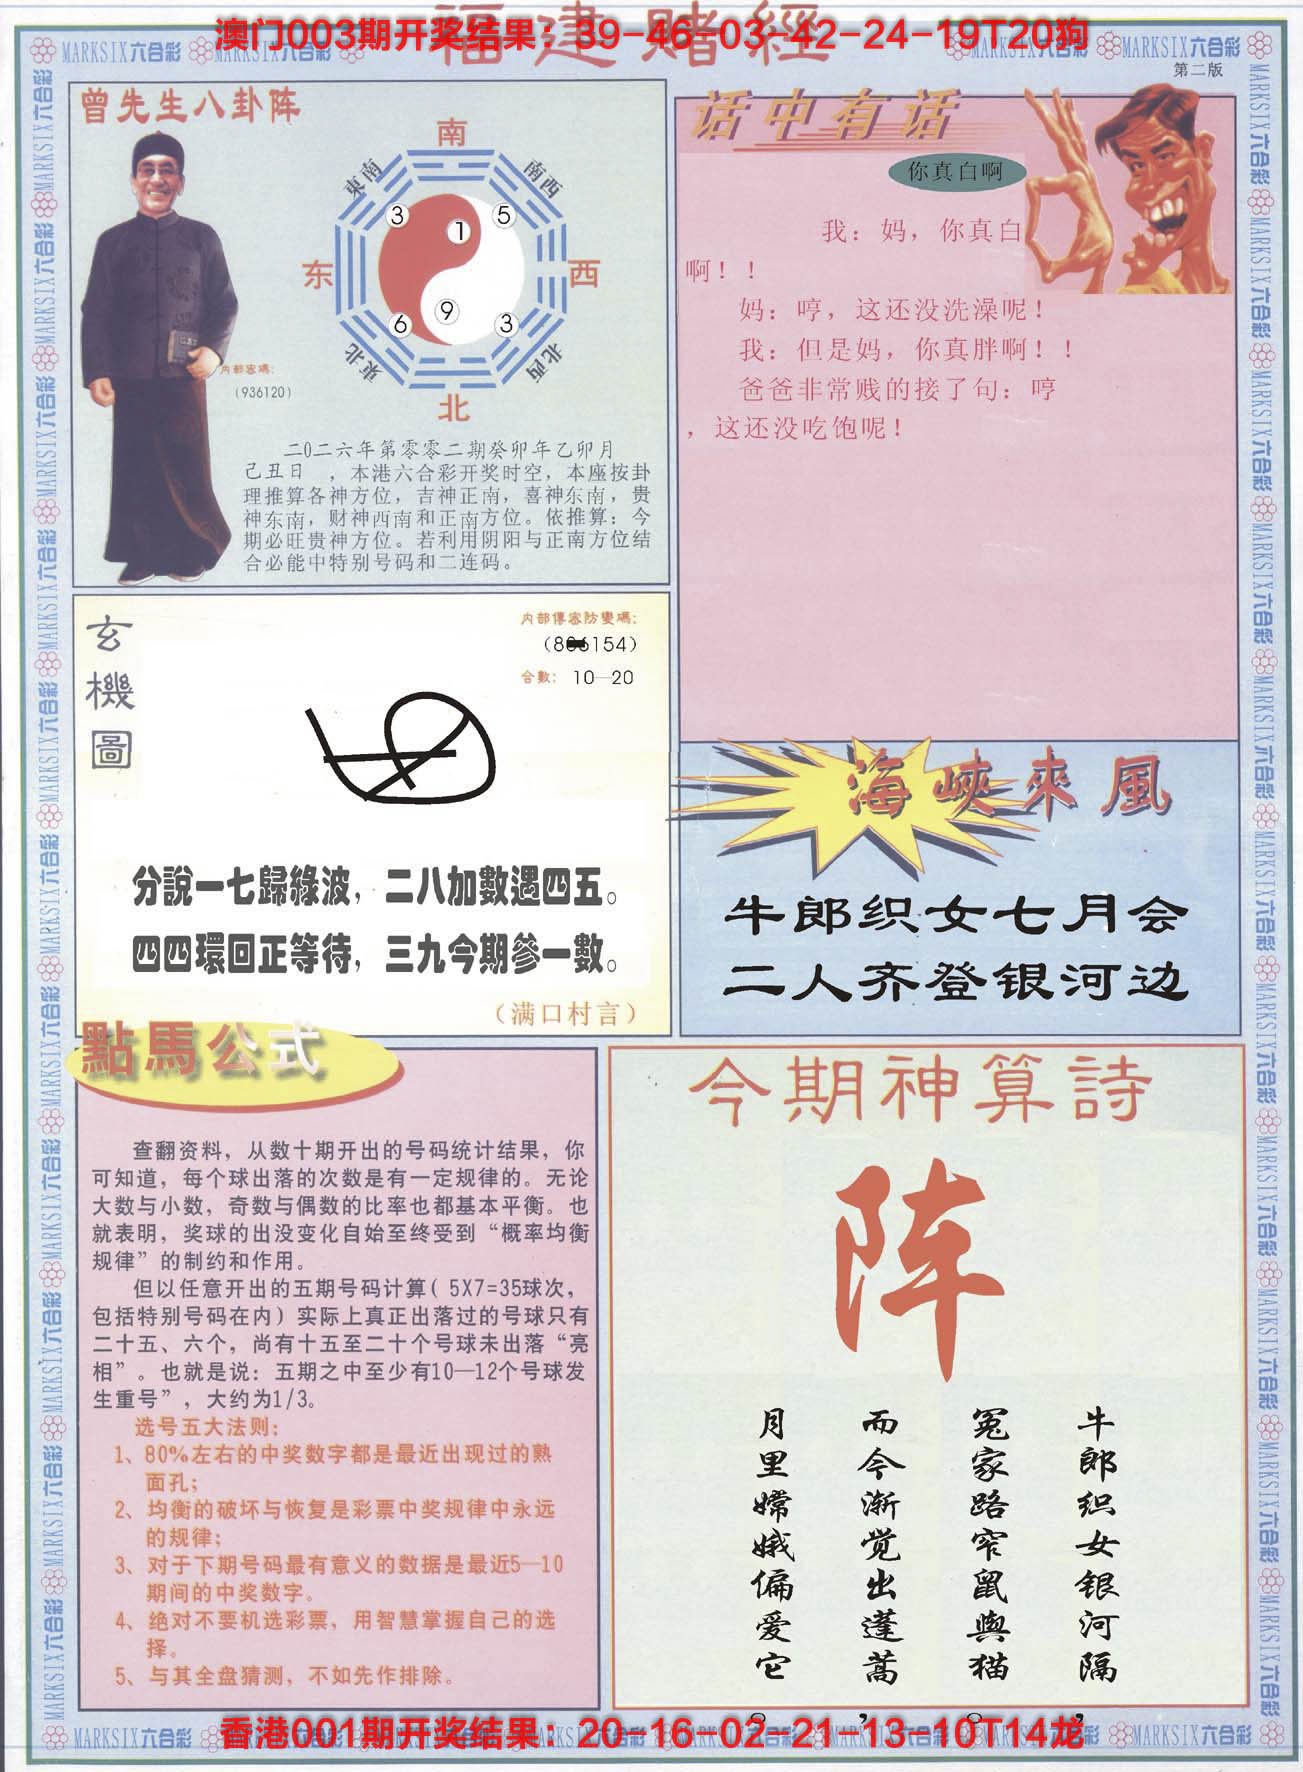 福建赌經
澳门003期开奖结果：39-46-03-42-24-19T20狗
MARKSIX六合彩
第二版
曾先生八卦阵
南
東南
南西
3
1
5
东
西
6
9
3
東北
北西
北
内部密碼：
（936120）
二0二六年第零零二期癸卯年乙卯月
己丑日　，本港六合彩开奖时空，本座按卦
理推算各神方位，吉神正南，喜神东南，贵
神东南，财神西南和正南方位。依推算：今
期必旺贵神方位。若利用阴阳与正南方位结
合必能中特别号码和二连码。
话中有话
你真白啊
我：妈，你真白
啊！！
妈：哼，这还没洗澡呢！
我：但是妈，你真胖啊！！
爸爸非常贱的接了句：哼
，这还没吃饱呢！
玄機圖
内部傳密防變碼：
合數：10—20
分說一七歸綠波，二八加數遇四五。
四四環回正等待，三九今期參一數。
（满口村言）
海峽來風
牛郎织女七月会
二人齐登银河边
點馬公式
查翻资料，从数十期开出的号码统计结果，你
可知道，每个球出落的次数是有一定规律的。无论
大数与小数，奇数与偶数的比率也都基本平衡。也
就表明，奖球的出没变化自始至终受到“概率均衡
规律”的制约和作用。
但以任意开出的五期号码计算（5X7=35球次，
包括特别号码在内）实际上真正出落过的号球只有
二十五、六个，尚有十五至二十个号球未出落“亮
相”。也就是说：五期之中至少有10—12个号球发
生重号”，大约为1/3。
选号五大法则：
1、80%左右的中奖数字都是最近出现过的熟
面孔；
2、均衡的破坏与恢复是彩票中奖规律中永远
的规律；
3、对于下期号码最有意义的数据是最近5—10
期间的中奖数字。
4、绝对不要机选彩票，用智慧掌握自己的选
择。
5、与其全盘猜测，不如先作排除。
今期神算詩
阵
牛郎织女银河隔，
冤家路窄鼠與猫。
而今渐觉出蓬蒿，
月里嫦娥偏爱它。
香港001期开奖结果：20-16-02-21-13-10T14龙